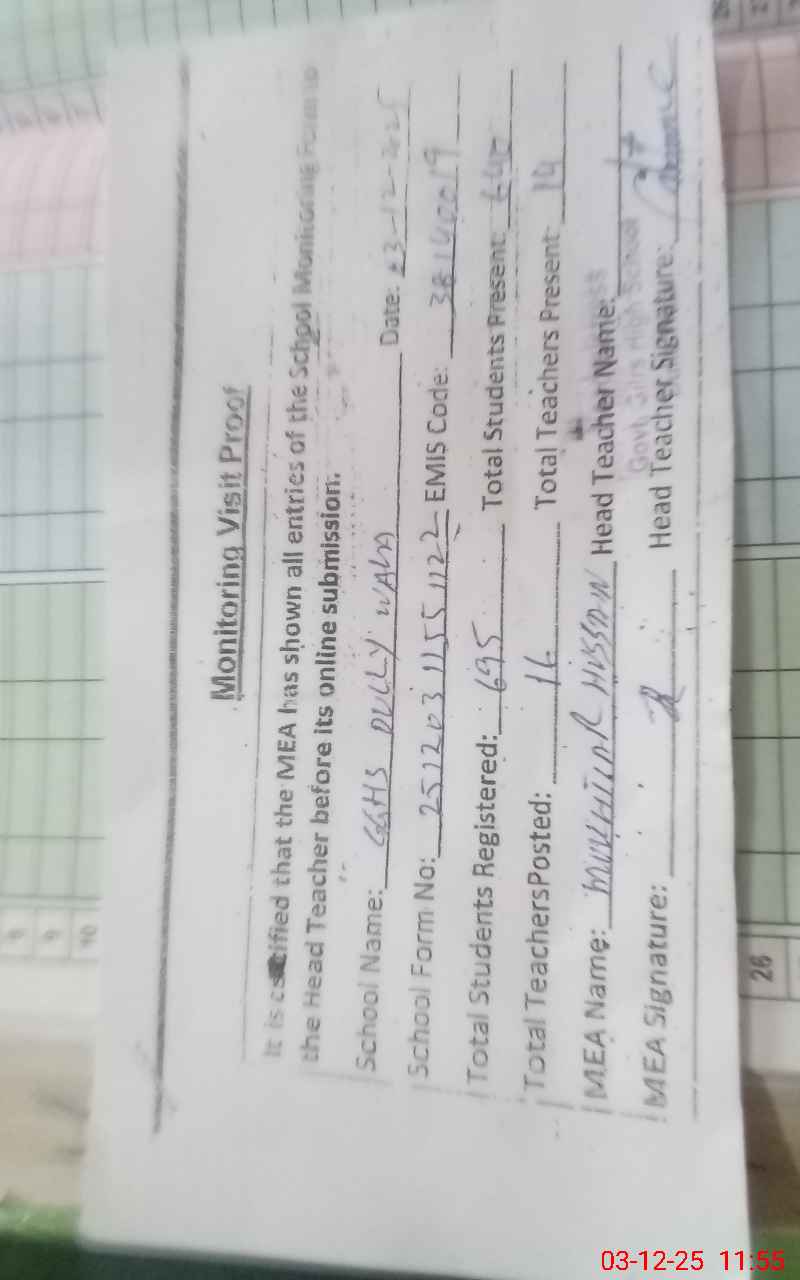 Monitoring Visit Proof
It is certified that the MEA has shown all entries of the School Monitoring Form to
the Head Teacher before its online submission.
School Name: GGHS DULLY WALA Date: 03-12-2025
School Form No: 251203 1155 1122 EMIS Code: 38140019
Total Students Registered: 695 Total Students Present: 640
Total Teachers Posted: 16 Total Teachers Present: 14
MEA Name: HUSSAIN Head Teacher Name:
Govt. Girls High School
MEA Signature: Head Teacher Signature:
9
10
26
03-12-25 11:55